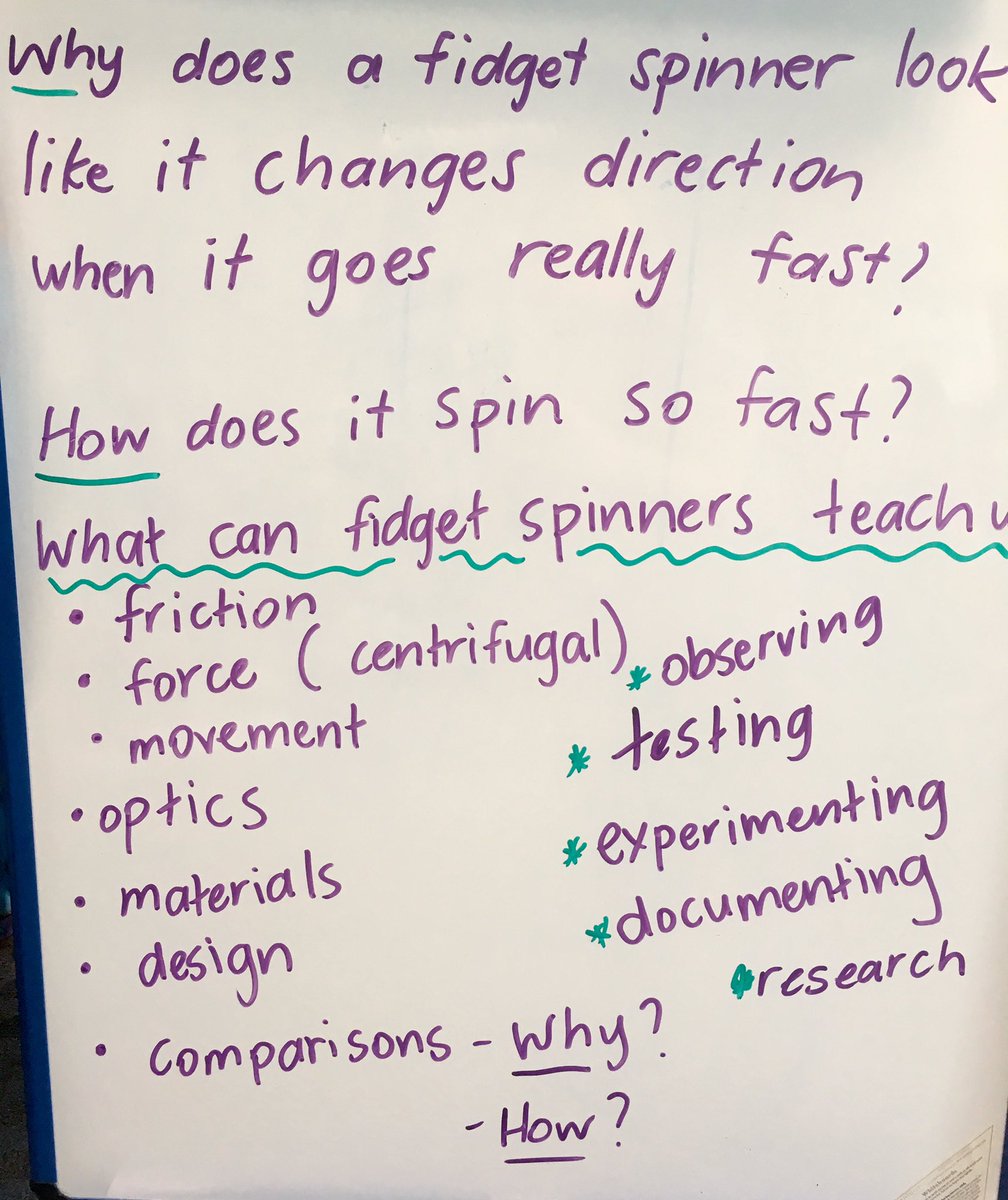 Why does a fidget spinner look
like it changes direction
when it goes really fast?
How does it spin so fast?
What can fidget spinners teach
• friction
• force (centrifugal)
• movement
• optics
• materials
• design
• comparisons - Why?
- How?
* observing
* testing
* experimenting
* documenting
* research